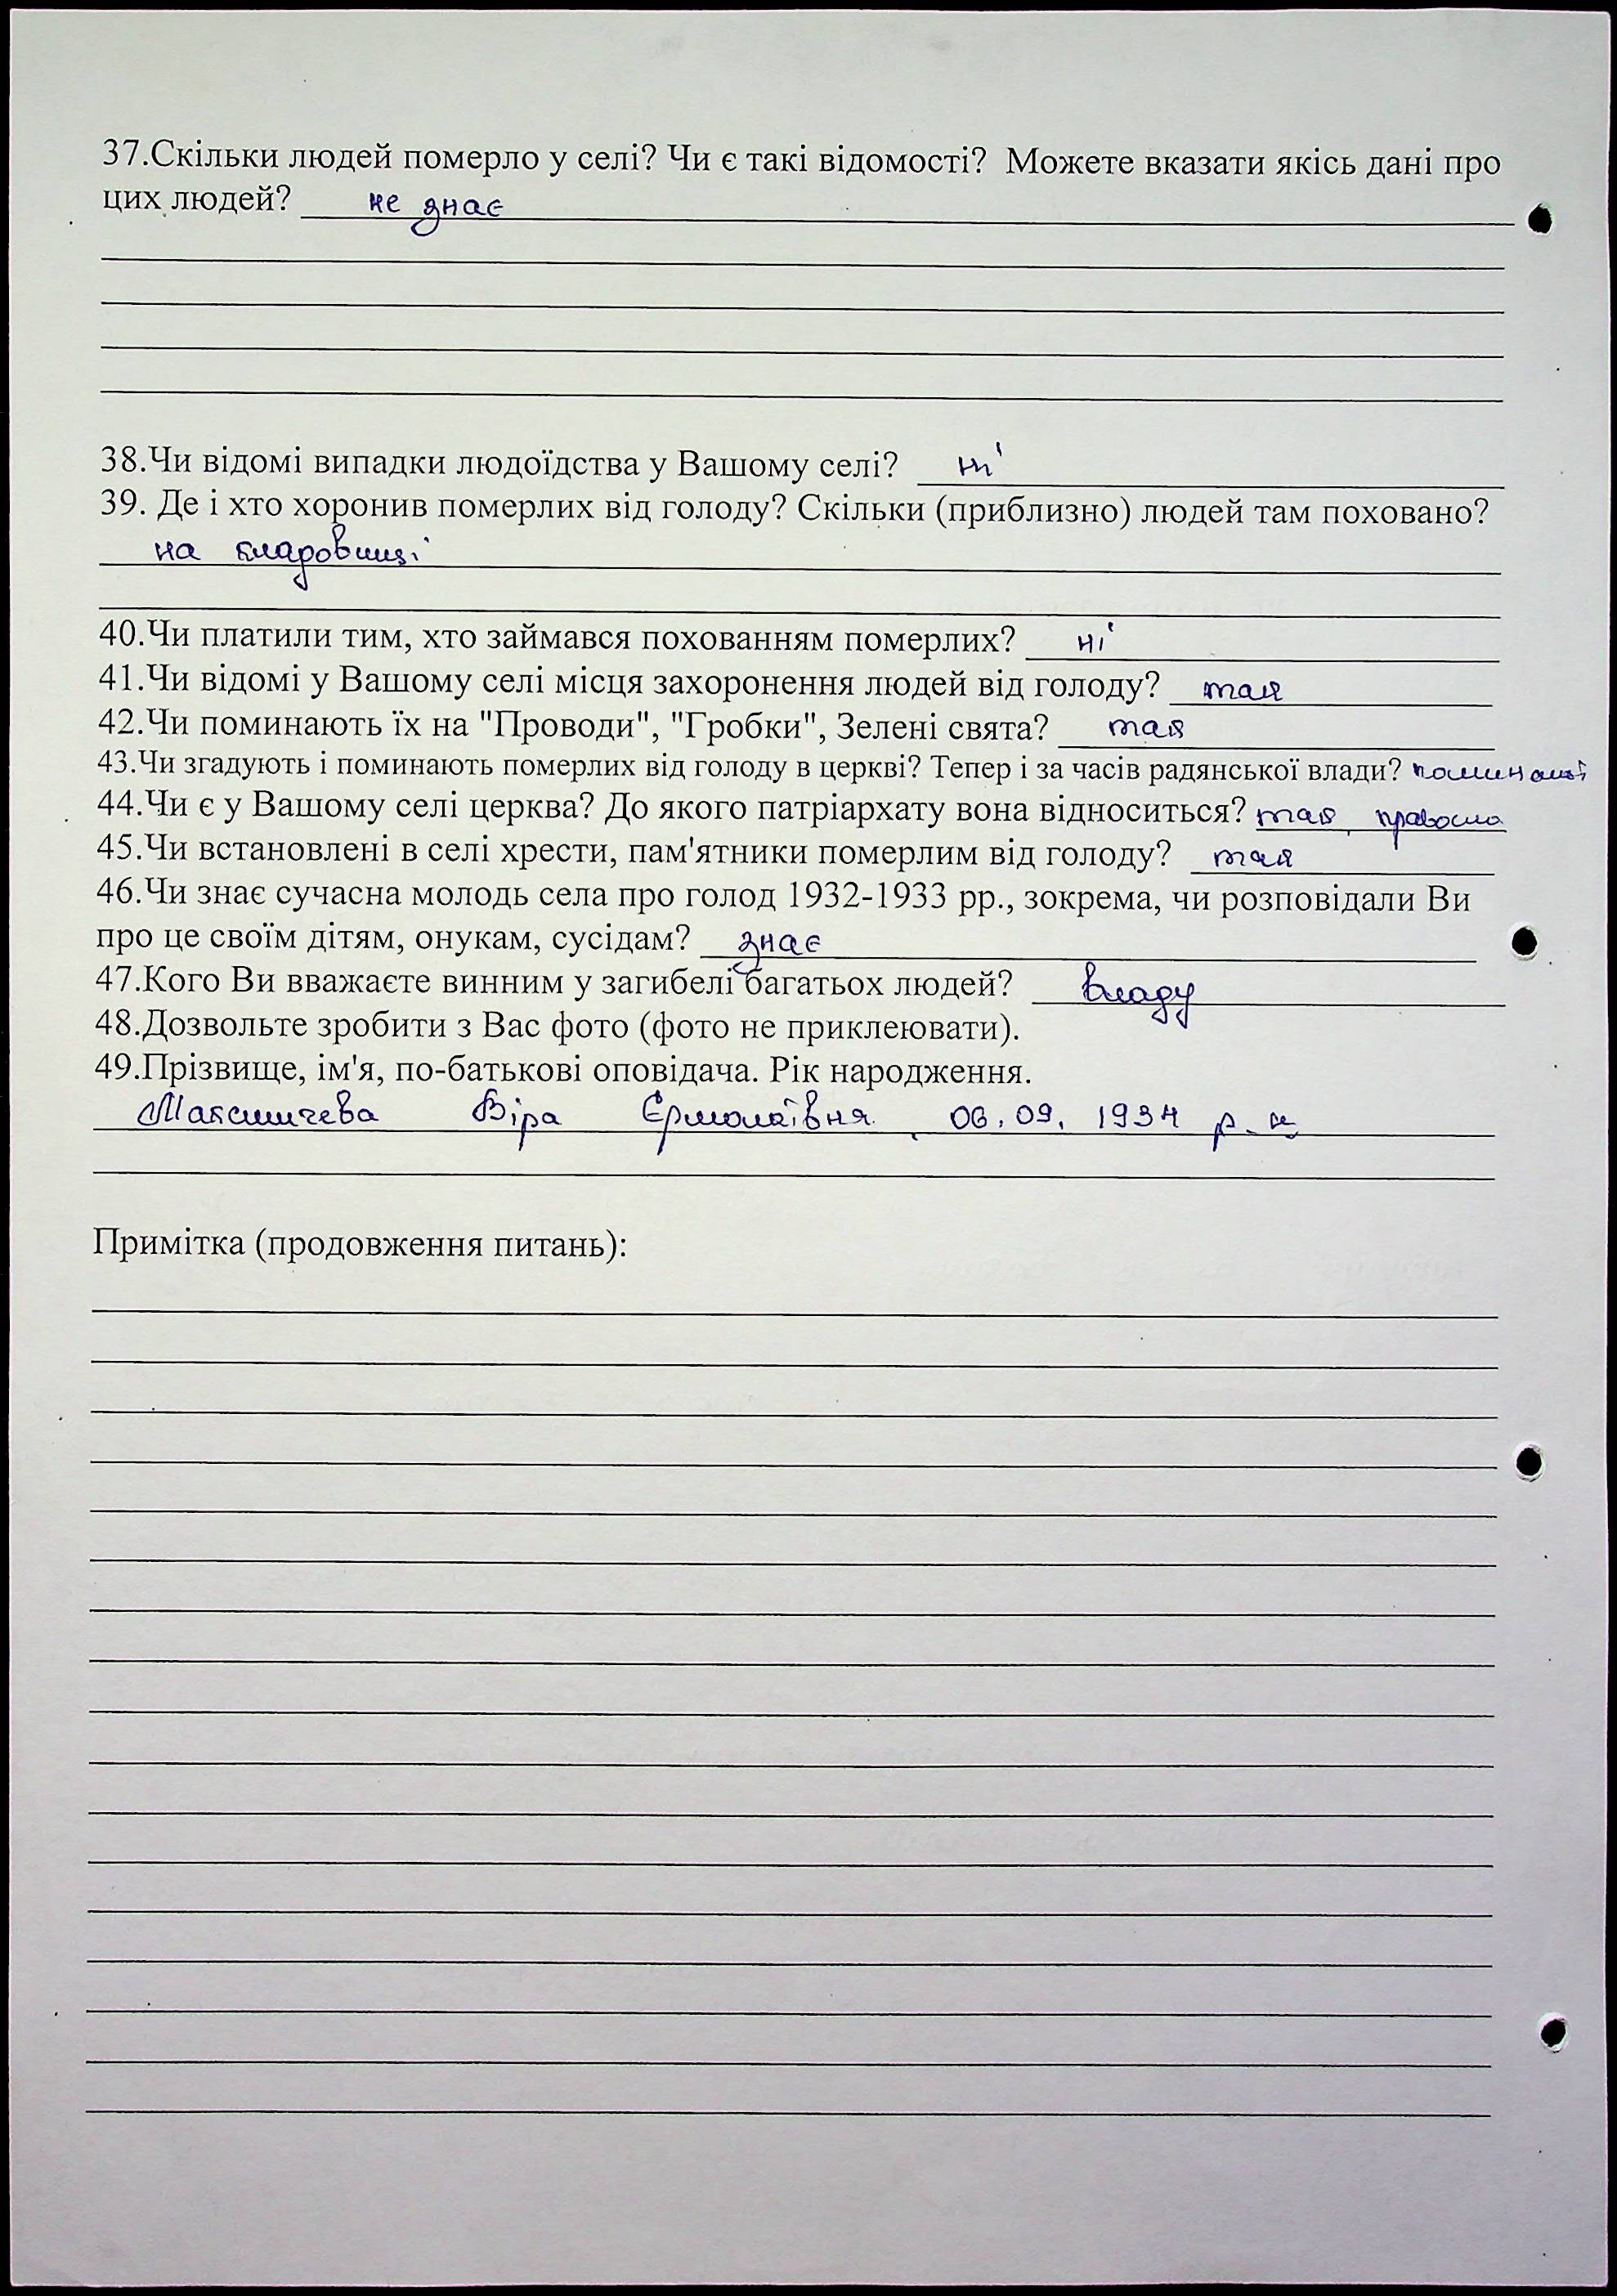 37.Скільки людей померло у селі? Чи є такі відомості? Можете вказати якісь дані про
цих людей? не знає
38.Чи відомі випадки людоїдства у Вашому селі? ні
39. Де і хто хоронив померлих від голоду? Скільки (приблизно) людей там поховано?
на кладовищі
40.Чи платили тим, хто займався похованням померлих? ні
41.Чи відомі у Вашому селі місця захоронення людей від голоду?
42.Чи поминають їх на "Проводи", "Гробки", Зелені свята?
43.Чи згадують і поминають померлих від голоду в церкві? Тепер і за часів радянської влади?
44.Чи є у Вашому селі церква? До якого патріархату вона відноситься?
45.Чи встановлені в селі хрести, пам'ятники померлим від голоду?
46.Чи знає сучасна молодь села про голод 1932-1933 рр., зокрема, чи розповідали Ви
про це своїм дітям, онукам, сусідам? знає
47.Кого Ви вважаєте винним у загибелі багатьох людей? владу
48.Дозвольте зробити з Вас фото (фото не приклеювати).
49.Прізвище, ім'я, по-батькові оповідача. Рік народження.
Максимчева Віра Єрмолаївна, 06.09.1934 р.н
Примітка (продовження питань):